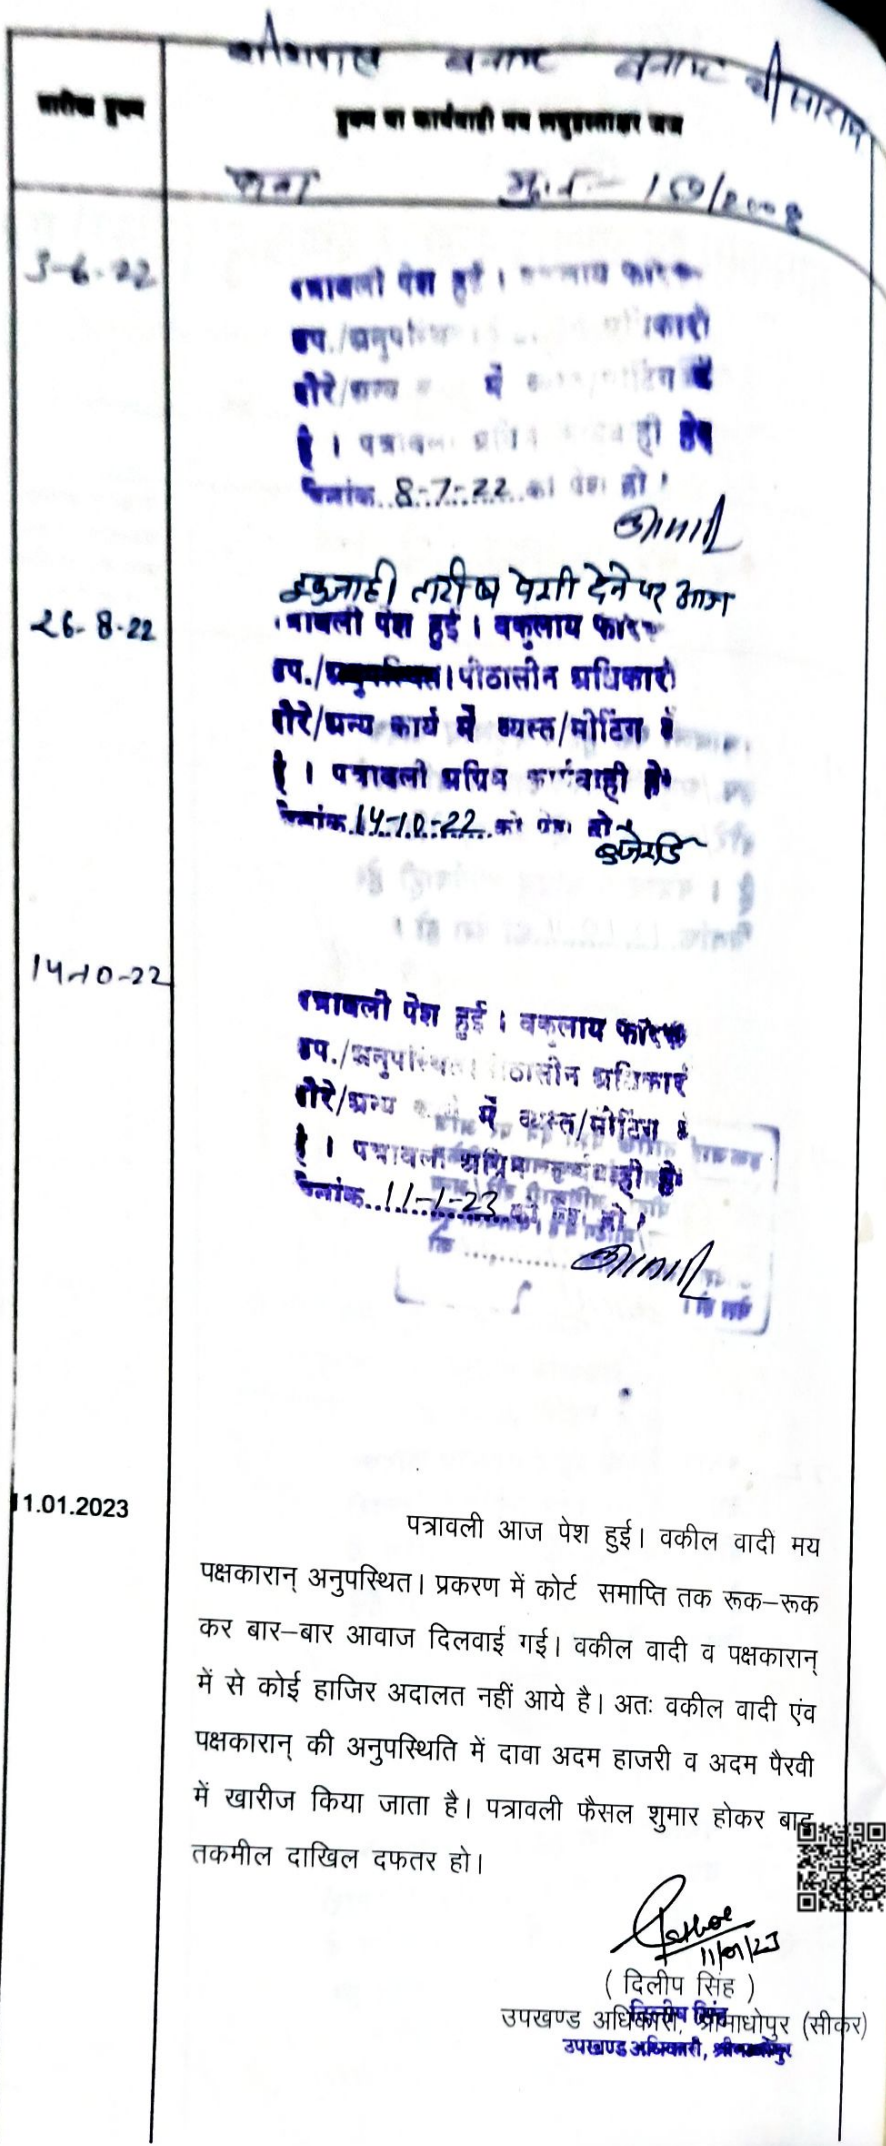 बनाम
तारीख हुक्म
हुक्म या कार्यवाही मय लघुहस्ताक्षर जज
3-6-22
पत्रावली पेश हुई । वकलाय फरिक
उप./अनुपस्थि
दौरे/अन्य में
है । पत्रावली ही हेतु
दिनांक 8-7-22 को पेश हो ।
तारीख पेशी देने पर आज
26-8-22
पत्रावली पेश हुई । वकुलाय फरिक
उप./अनुपस्थित। पीठासीन अधिकारी
दौरे/अन्य कार्य में व्यस्त/मीटिंग में
है । पत्रावली अग्रिम कार्यवाही हेतु
दिनांक 14-10-22 को पेश हो
14-10-22
पत्रावली पेश हुई । वकुलाय फरिक
उप./अनुपस्थित। पीठासीन अधिकारी
दौरे/अन्य कार्य में व्यस्त/मीटिंग में
है । पत्रावली अग्रिम कार्यवाही हेतु
दिनांक 11-1-23 को पेश हो ।
11.01.2023
पत्रावली आज पेश हुई। वकील वादी मय
पक्षकारान् अनुपस्थित। प्रकरण में कोर्ट समाप्ति तक रूक–रूक
कर बार–बार आवाज दिलवाई गई। वकील वादी व पक्षकारान्
में से कोई हाजिर अदालत नहीं आये है। अतः वकील वादी एंव
पक्षकारान् की अनुपस्थिति में दावा अदम हाजरी व अदम पैरवी
में खारीज किया जाता है। पत्रावली फैसल शुमार होकर बाद
तकमील दाखिल दफतर हो।
11/01/23
( दिलीप सिंह )
दिलीप सिंह
उपखण्ड अधिकारी, श्रीमाधोपुर (सीकर)
उपखण्ड अधिकारी, श्रीमाधोपुर